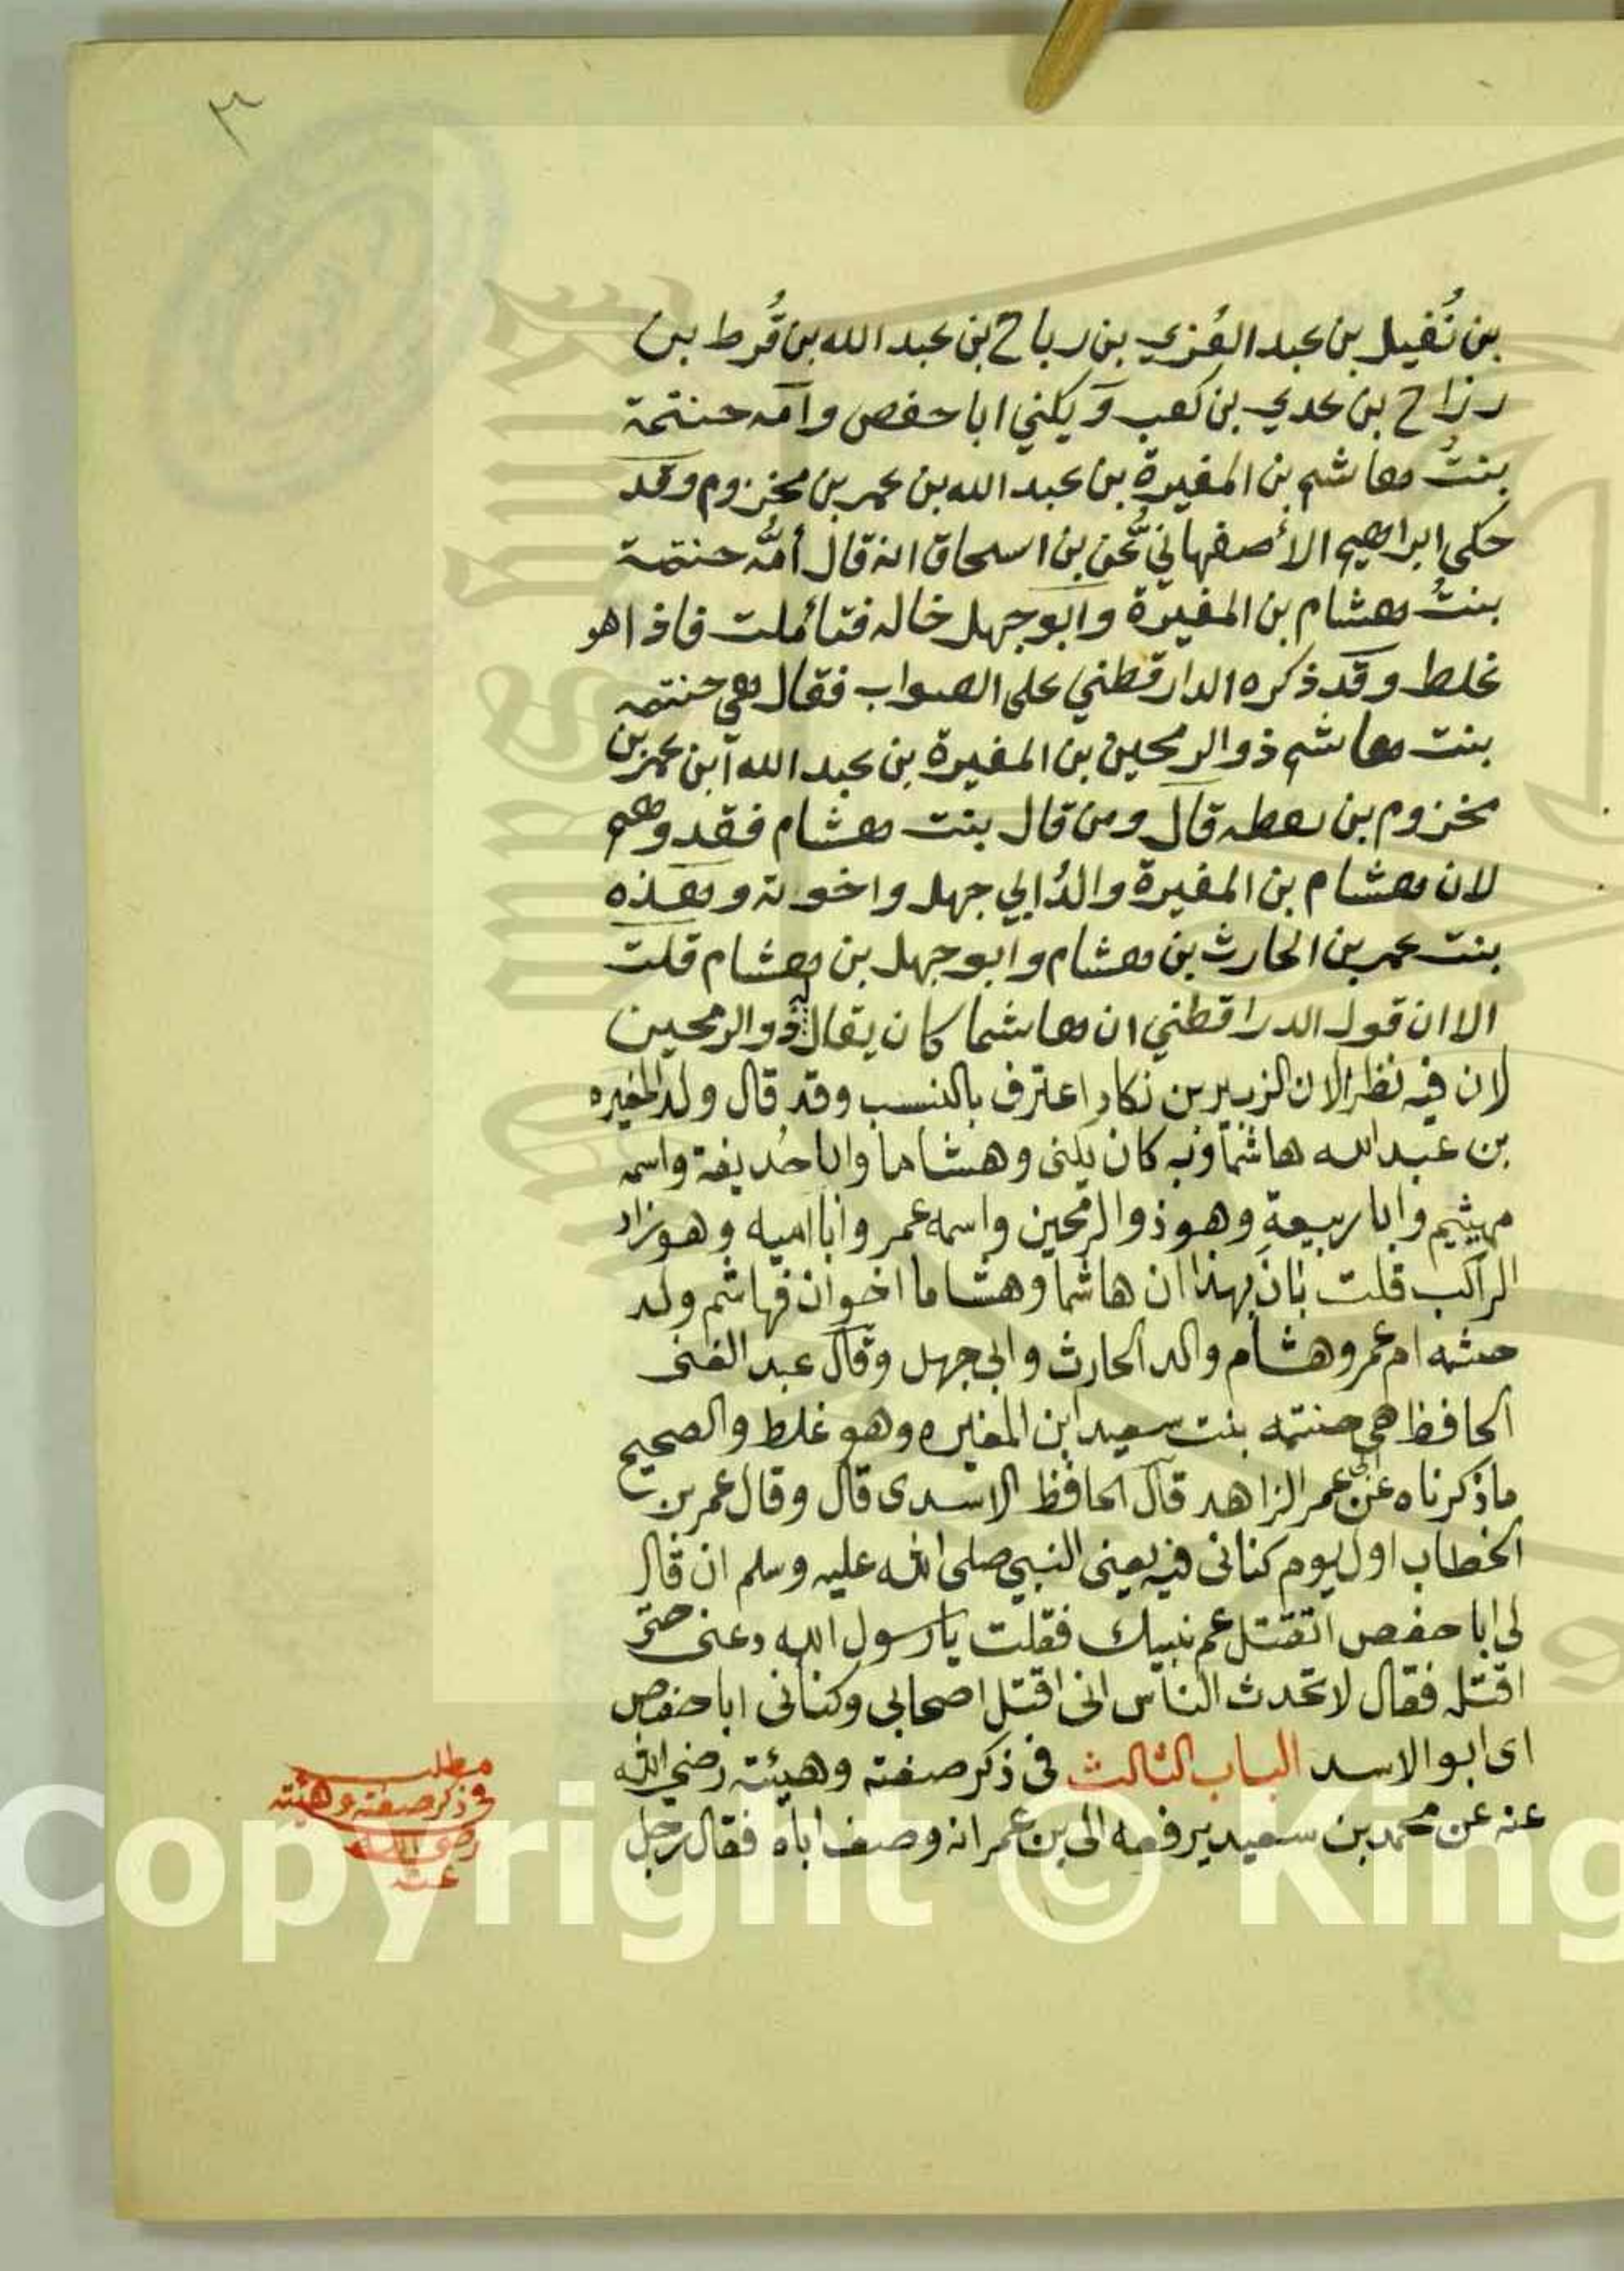 ٣
بن نُفيل بن عبد العُزي بن رباح بن عبد الله بن قُرط بن
رزاح بن عدي بن كعب ويكني ابا حفص وامه حنتمة
بنتُ هاشم بن المغيرة بن عبد الله بن عمر بن مخزوم وقد
حكى ابراهيم الأصفهاني عن بن اسحاق انه قال أمُّه حنتمة
بنتُ هشام بن المغيرة وابو جهل خاله فتأملت فاذا هو
غلط وقد ذكره الدارقطني على الصواب فقال هي حنتمه
بنت هاشم ذو الرمحين بن المغيرة بن عبد الله ابن عمر بن
مخزوم بن يقطه قال ومن قال بنت هشام فقد وهم
لان هشام بن المغيرة والدُ ابي جهل واخوته وهذه
بنت عمر بن الحارث بن هشام وابو جهل بن هشام قلت
الا ان قول الدراقطني ان هاشما كان يقال له ذو الرمحين
لان فيه نظر الان الزبير بن نكار اعترف بالنسب وقد قال ولد المغيره
بن عبد الله هاشما وبه كان يكنى وهشاما وابا حُذيفة واسمه
مهيثيم وابا ربيعة وهو ذو الرمحين واسمه عمر وابا اميه وهو زاد
الراكب قلت بَانَ بهذا ان هاشما وهشاما اخوان فهاشم ولد
حثمه ام عمر وهشام والد الحارث وابي جهل وقال عبد الغنى
الحافظ هي حنتمه بنت سعيد ابن المغيره وهو غلط والصحيح
ما ذكرناه عن ابى عمر الزاهد قال الحافظ الاسدى قال وقال عمر بن
الخطاب اول يوم كنانى فيه يعنى النبي صلى الله عليه وسلم ان قال
لى ابا حفص اتقتل عم نبيك فقلت يا رسول الله دعنى حتى
اقتله فقال لا تحدث الناس انى اقتل اصحابى وكنانى ابا حفص
اى ابو الاسد الباب الثالث فى ذكر صفته وهيئته رضي الله
عنه عن محمد بن سعيد يرفعه الى بن عمر انه وصف اباه فقال رجل
مطلب
فى ذكر صفته وهيئته
رضى الله
عنه
Copyright © King